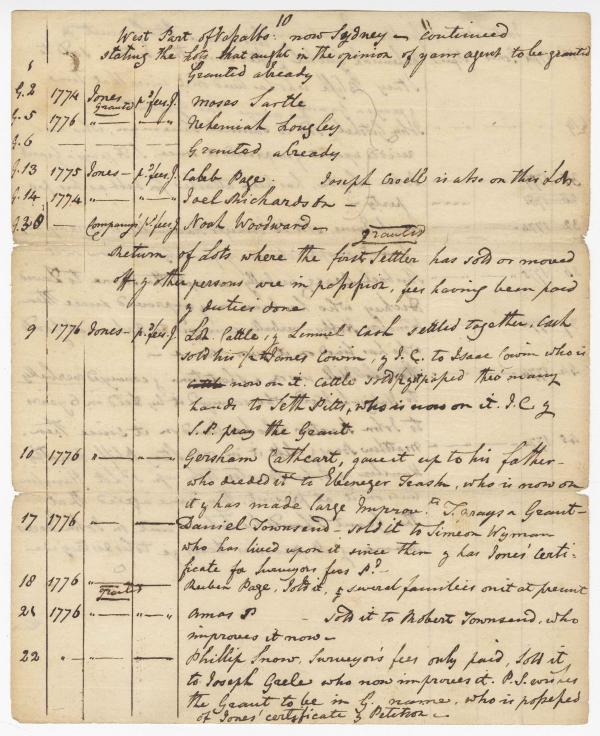 10
West Part of Vassalbo: now Sydney - Continued
stating the Lots that aught in the opinion of your agent to be granted
Granted already
G.2 1774 Jones pd fees J. Moses Sartle
Granted
G.5 1776 " " Nehemiah Longley
G.6 — — — Granted already
G.13 1775 Jones - pd fees J. Caleb Page. Joseph Croell is also on this Lot
G.14 1774 " — " — " Joel Richardson -
G.30 — Company's pd fees J. Noah Woodward -
granted
Return of Lots where the first Settler has sold or moved
off & other persons are in possession, fees having been paid
& duties done
9 1776 Jones - pd fees J. Cattle, & Lemuel Cash settled together, Cash
sold his pt James Cowin, & J.C. to Isaac Cowin who is
now on it. Cattle sold & it passed thro' many
hands to Seth Pitts, who is now on it. I.C. &
S.P. pray the Grant.
10 1776 " — " — " Gersham Cathcart, gave it up to his father
who deeded it to Ebenezer Trash, who is now on
it & has made large Improv.ts T. prays a Grant -
17 1776 " — " Daniel Townsend sold it to Simeon Wyman
who has lived upon it since then & has Jones' Certi-
ficate for Surveyors fees pd. -
18 1776 " — Reuben Page, Sold it, & several families on it at present
granted
21 1776 " — " — " Amas P - sold it to Robert Townsend, who
improves it now -
22 " — Phillip Snow, Surveyor's fees only paid, Sold it
to Joseph Grele who now improves it. P.S. wishes
the Grant to be in G. name, who is possessed
of Jones' certificate & Petition -